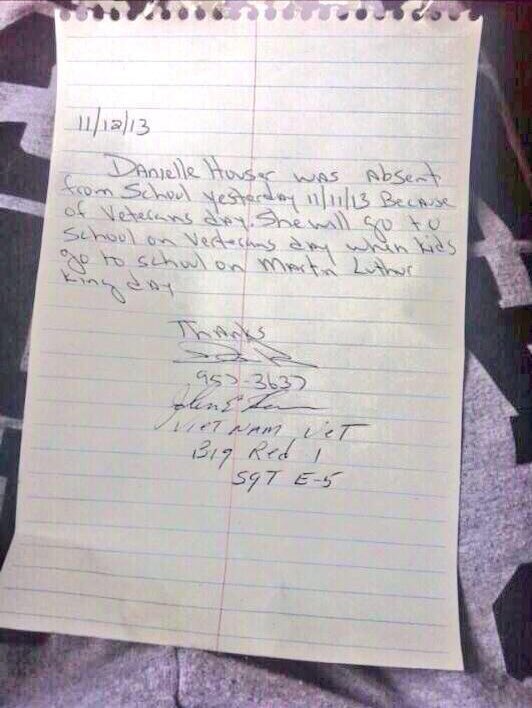 11/12/13
Danielle Houser was Absent
from School yesterday 11/11/13 Because
of Veterans day. She will go to
School on Verterans day when kids
go to school on Martin Luthur
King day
Thanks
957-3637
John E
VIET NAM VET
Big Red 1
SgT E-5